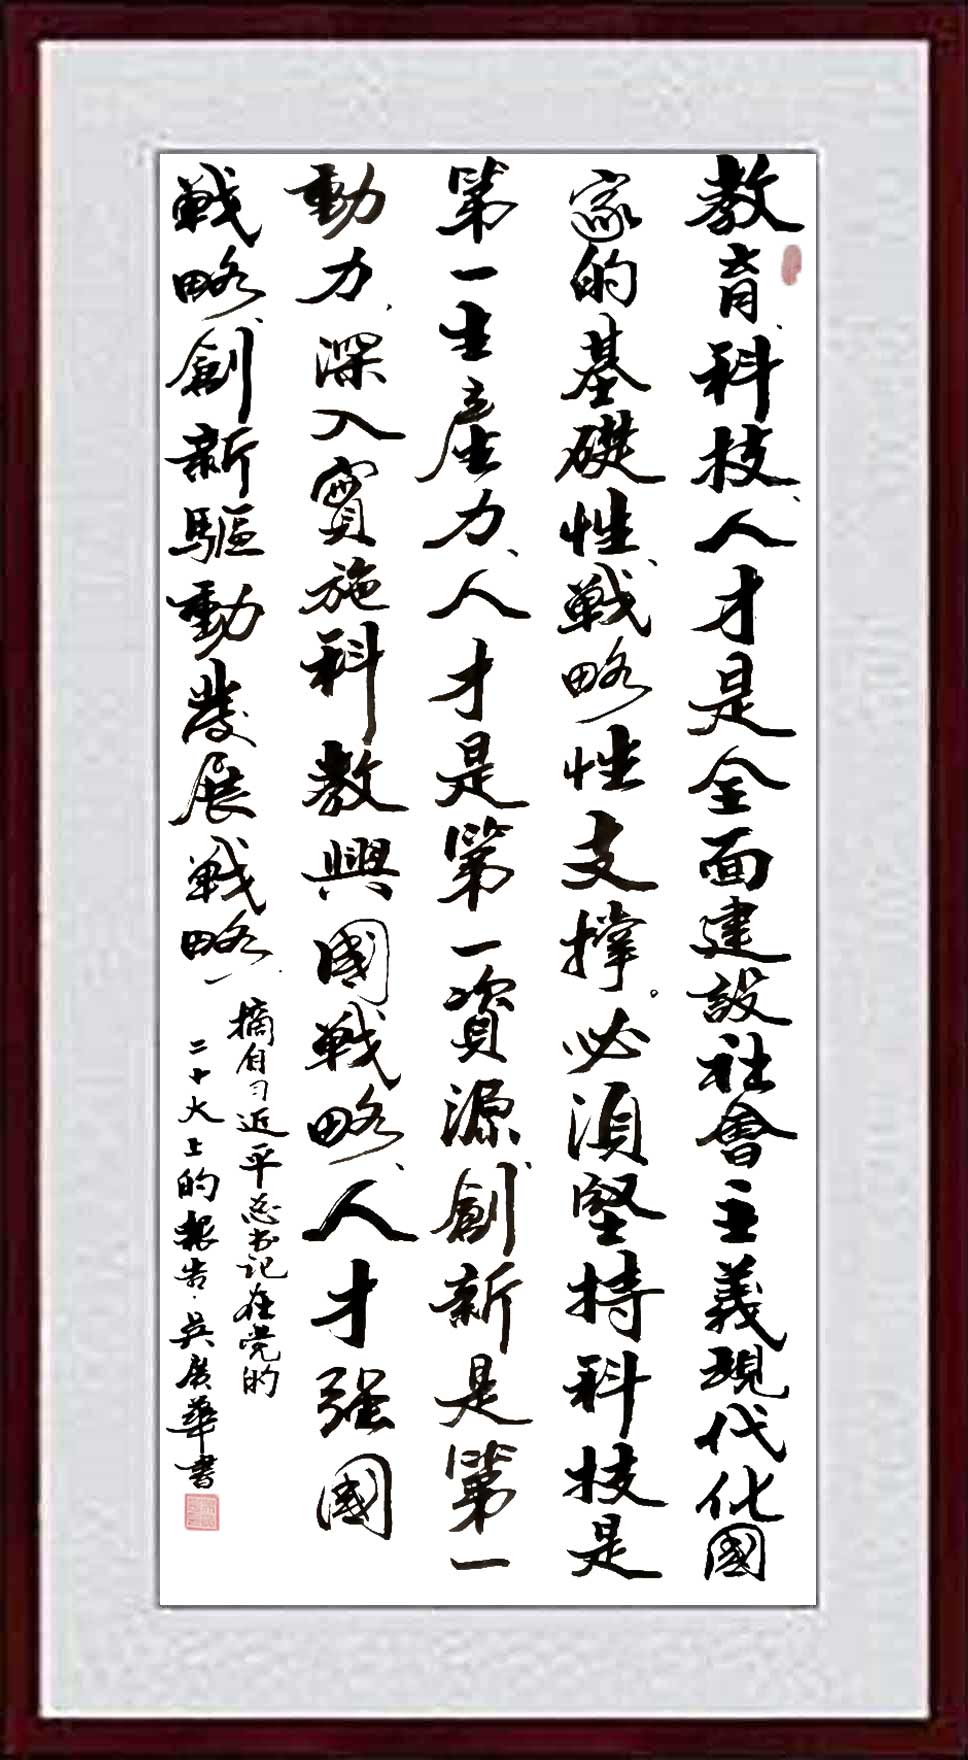 教育、科技、人才是全面建設社會主義現代化國
家的基礎性、戦略性支撑。必須堅持科技是
第一生產力、人才是第一資源、創新是第一
動力，深入實施科教興國戦略、人才强國
戦略、創新驅動發展戦略
摘自习近平总书记在党的
二十大上的报告·吴廣華書